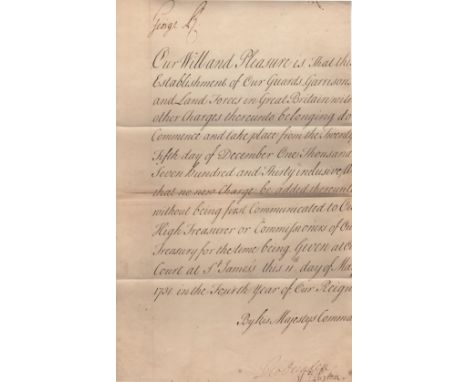 George R
Our Will and Pleasure is That this
Establishment of Our Guards, Garrison
and Land Forces in Great Britain with
other Charges thereunto belonging do
Commence and take place from the Twenty
Fifth day of December One Thousand
Seven Hundred and Thirty inclusive,
that no new Charge be added thereunt
without being first Communicated to Our
High Treasurer or Commissioners of Our
Treasury for the time being. Given at our
Court at St. James's this 11th day of May
1731 in the Fourth Year of Our Reign
By his Majestys Comma